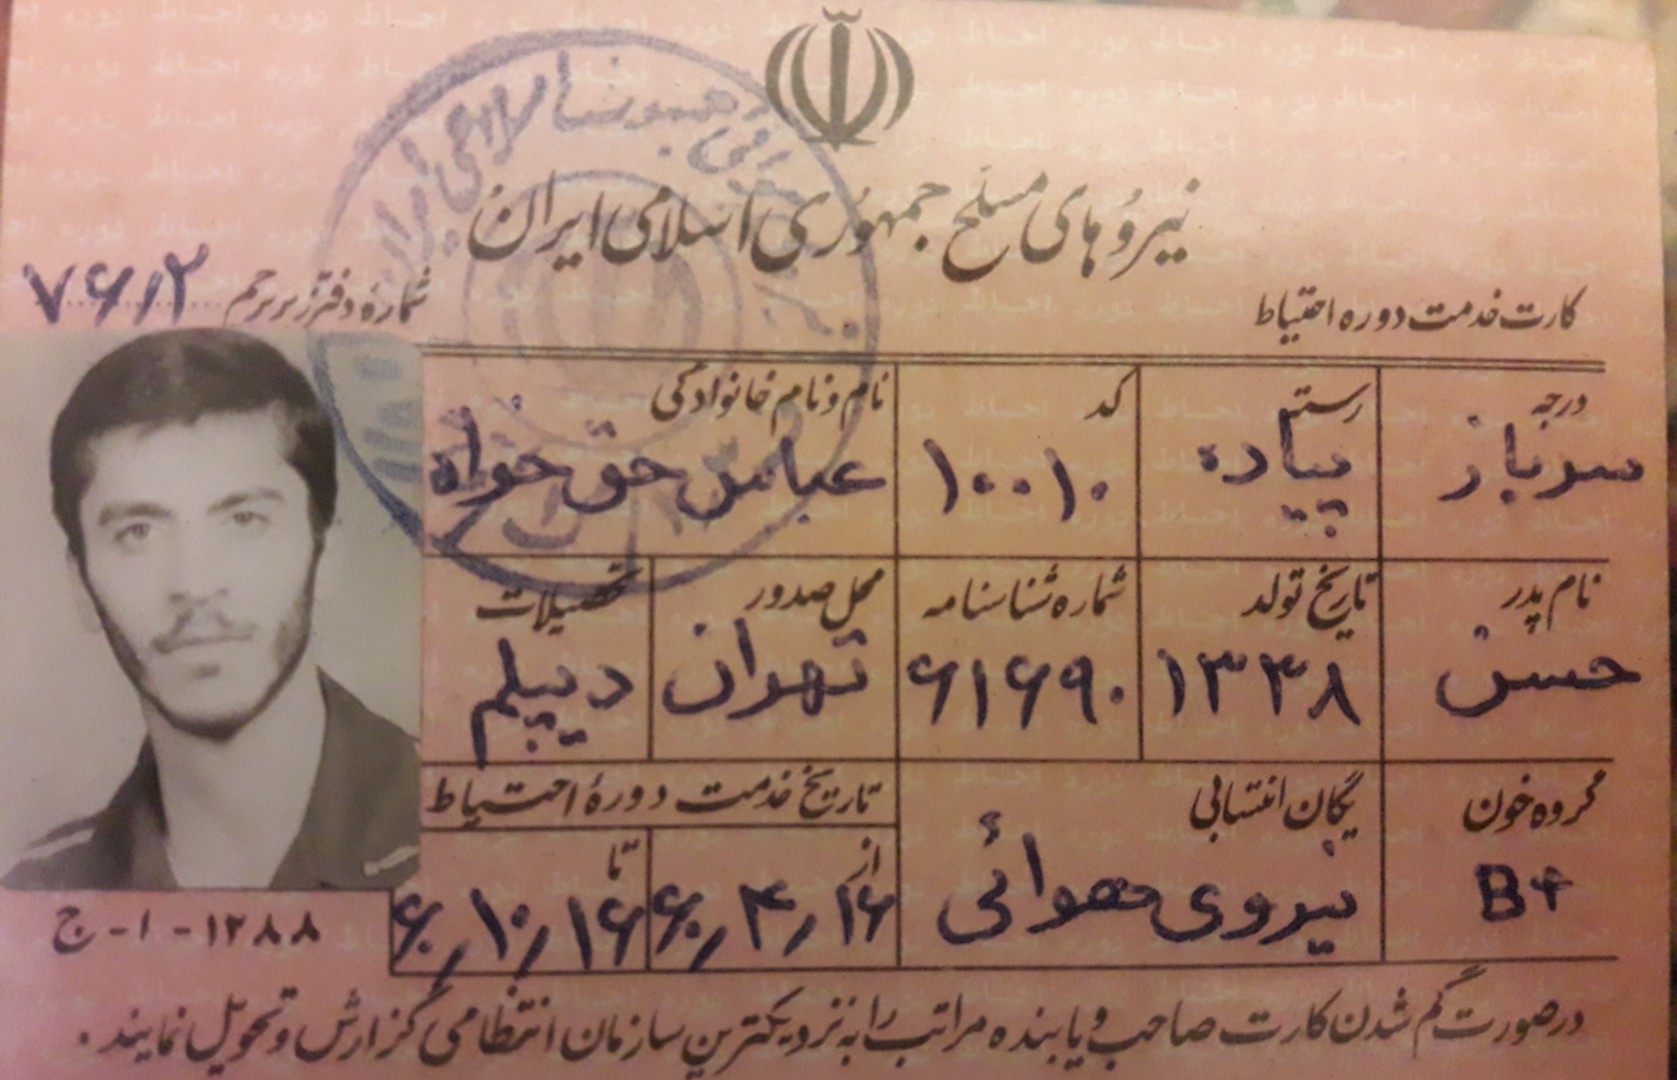 نیروهای مسلح جمهوری اسلامی ایران
کارت خدمت دوره احتیاط
شمارهٔ دفتر زیر پرچم ۷۶/۲
درجه
سرباز
رسته
پیاده
کد
۱۰۰۱۰
نام و نام خانوادگی
عباس حق خواه
نام پدر
حسن
تاریخ تولد
۱۳۳۸
شماره شناسنامه
۶۱۶۹۰
محل صدور
تهران
تحصیلات
دیپلم
گروه خون
B+
یگان انتسابی
نیروی هوائی
تاریخ خدمت دورهٔ احتیاط
از
۶۰/۴/۱۶
تا
۶۰/۱۰/۱۶
۱۲۸۸-۱-ج
در صورت گم شدن کارت صاحب و یابنده مراتب را به نزدیکترین سازمان انتظامی گزارش و تحویل نمایند.